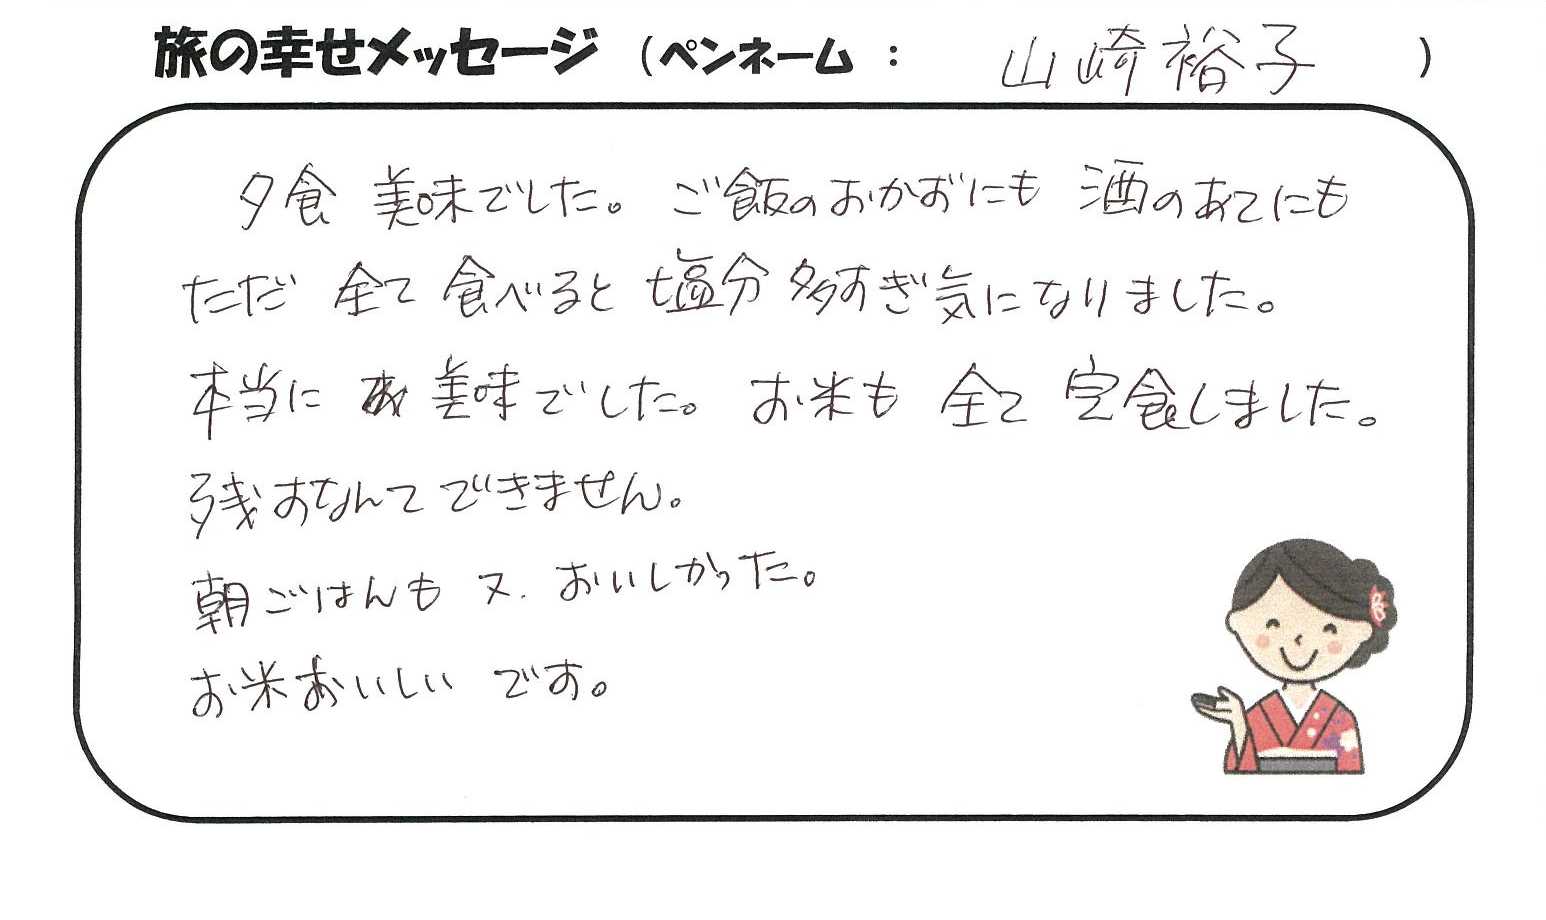 旅の幸せメッセージ (ペンネーム : 山崎裕子 )
夕食 美味でした。ご飯のおかずにも 酒のあてにも
ただ 全て 食べると 塩分 多すぎ気になりました。
本当に 美味でした。お米も 全て 完食しました。
残すなんてできません。
朝ごはんも 又、おいしかった。
お米おいしい です。